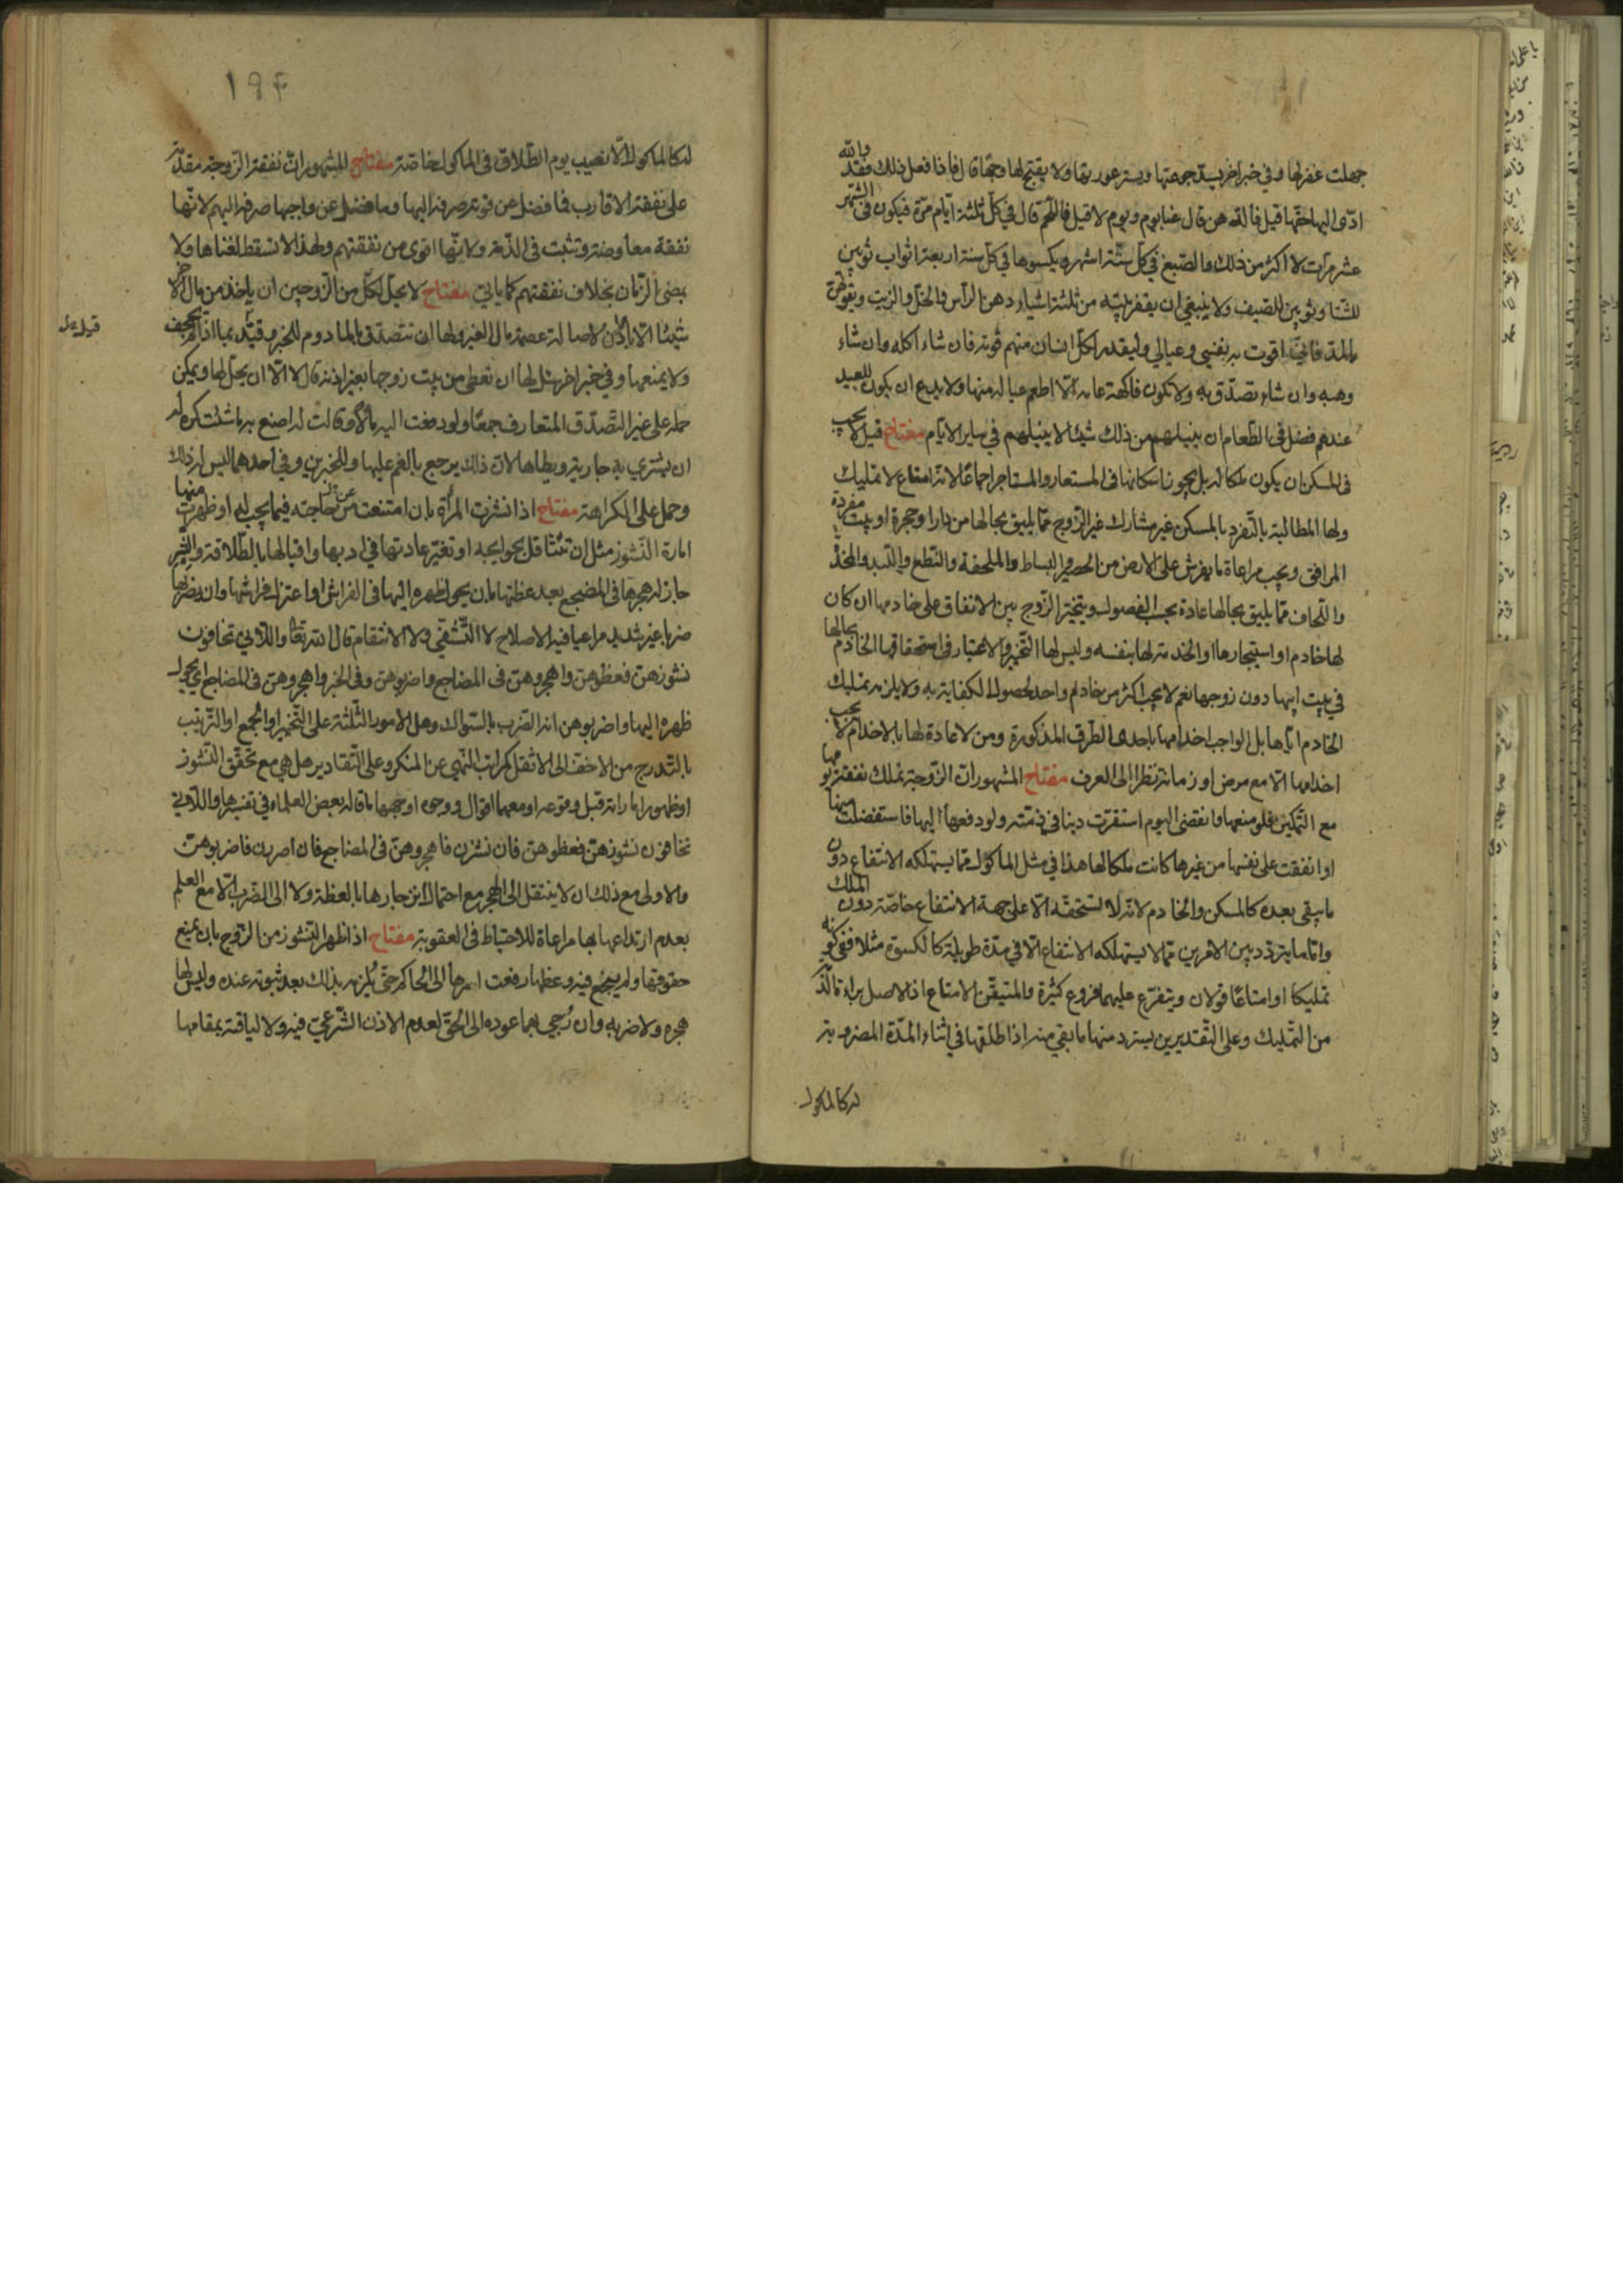 جهلت غفر لها وفي خبر اخر يسد جوعتها ويستر عورتها ولا يقبح لها وجها قال فاذا فعل ذلك فقد والله
ادى اليها حقها قيل فالدهن قال غبا يوم ويوم لا قيل فاللحم قال في كل ثلثة ايام مرة فيكون في الشهر
عشر مرات لا اكثر من ذلك والصبغ في كل ستة اشهر ويكسوها في كل سنة اربعة اثواب ثوبين
للشتا وثوبين للصيف ولا ينبغي ان يقفر بيته من ثلثة اشياء دهن الراس والخل والزيت ويقوتهن
بالمد فاني اقوت به نفسي وعيالي وليقدر لكل انسان منهم قوته فان شاء اكله وان شاء
وهبه وان شاء تصدق به ولا تكون فاكهة عامة الا اطعم عياله منها ولا يدع ان يكون للعيد
عندهم فضل في الطعام ان ينيلهم من ذلك شيئا لا ينيلهم في ساير الايام مفتاح قيل لا يجب
في المسكن ان يكون ملكا له بل يجوز اسكانها في المستعار والمستاجر اجماعا لانه امتاع لا تمليك
ولها المطالبة بالتفرد بالمسكن عن مشارك غير الزوج مما يليق بحالها من دار او حجرة او بيت مفردة
المرافق ويجب مراعاة ما يفرش على الارض من الحصير والبساط والملحفة والنطع واللبد والمخدة
واللحاف مما يليق بحالها عادة بحسب الفصول ويتخير الزوج بين الانفاق على خادمها ان كان
لها خادم او استيجارها او الخدمة لها بنفسه وليس لها التخيير والاعتبار في استحقاقها الخادم بحالها
في بيت ابيها دون زوجها نعم لا يجب اكثر من خادم واحد لحصول الكفاية به ولا يلزمه تمليك
الخادم اياها بل الواجب اخدامها باحدى الطرق المذكورة ومن لا عادة لها بالاخدام لا يجب
اخدامها الا مع مرض او زمانة نظرا الى العرف مفتاح المشهور ان الزوجة تملك نفقة يومها
مع التمكين فلو منعها وانقضى اليوم استقرت دينا في ذمته ولو دفعها اليها فاستفضلت منها
او انفقت على نفسها من غيرها كانت ملكا لها هذا في مثل الماكول مما يستهلكه الانتفاع دون
ما يبقى بعده كالمسكن والخادم لانه لا تستحقه الا على جهة الانتفاع خاصة دون الملك
واما ما يتردد بين الامرين مما لا يستهلكه الانتفاع الا في مدة طويلة كالكسوة مثلا ففي كونه
تمليكا او امتاعا قولان ويتفرع عليهما فروع كثيرة والمتيقن الامتاع اذ الاصل براءة الذمة
من التمليك وعلى التقديرين يسترد منها ما بقي منه اذا طلقها في اثناء المدة المضروبة
له كالماكول
١٩٤
له كالماكول الا نصيب يوم الطلاق في الماكول خاصة مفتاح المشهور ان نفقة الزوجة مقدمة
على نفقة الاقارب فما فضل عن قوته صرفه اليها وما فضل عن واجبها صرفه اليهم لانها
نفقة معاوضة وتثبت في الذمة ولانها اقوى من نفقتهم ولهذا لا تسقط لغناها ولا
بمضي الزمان بخلاف نفقتهم كما ياتي مفتاح لا يحل لكل من الزوجين ان ياخذ من مال الاخر
شيئا الا بالاذن لاصالة عصمة مال الغير ولها ان تتصدق بالمادوم للخبر وقيد بما اذا لم يجحف
قيل
ولا يمنعها وفي خبر اخر هل لها ان تعطى من بيت زوجها بغير اذنه قال لا الا ان يحل لها ويمكن
حمله على غير التصدق المتعارف جمعا ولو دفعت اليه مالا وقالت له اصنع به ما شئت كره له
ان يشتري به جارية ويطاها لان ذلك يرجع بالغم عليها وللخبرين وفي احدهما ليس له ذلك
وحمل على الكراهة مفتاح اذا نشزت المراة بان امتنعت من حاجته فيما يجب له او ظهرت منها
امارة النشوز مثل ان تتثاقل بحوايجه او تغير عادتها في ادبها واقبالها بالطلاقة والبشر
جاز له هجرها في المضجع بعد عظتها بان يحول ظهره اليها في الفراش او اعتزل فراشها وان يضربها
ضربا غير شديد مراعيا فيه الاصلاح لا التشفي ولا الانتقام قال الله تعالى واللاتي تخافون
نشوزهن فعظوهن واهجروهن في المضاجع واضربوهن وفي الخبر واهجروهن في المضاجع اي يحول
ظهره اليها واضربوهن انه الضرب بالسواك وهل الامور الثلثة على التخيير او الجمع او الترتيب
بالتدرج من الاخف الى الاثقل كمراتب النهي عن المنكر وعلى التقادير هل هي مع تحقق النشوز
او ظهور اماراته قبل وقوعه او معهما اقوال ووجوه اوجهها ما قاله بعض العلماء في تفسيرها واللاتي
تخافون نشوزهن فعظوهن فان نشزن فاهجروهن في المضاجع فان اصررن فاضربوهن
والاولى مع ذلك ان لا ينتقل الى الهجر مع احتمال انزجارها بالعظة ولا الى الضرب الا مع العلم
بعدم ارتداعها بها مراعاة للاحتياط في العقوبة مفتاح اذا ظهر النشوز من الزوج بان يمنع
حقوقها ولم ينجع فيه وعظها رفعت امرها الى الحاكم حتى يلزمه بذلك بعد ثبوته عنده وليس لها
هجره ولا ضربه وان رجى بهما عوده الى الحق لعدم الاذن الشرعي فيه ولا لياقته بمقامها